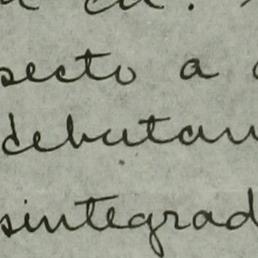 secto a
debutan
sintegrad